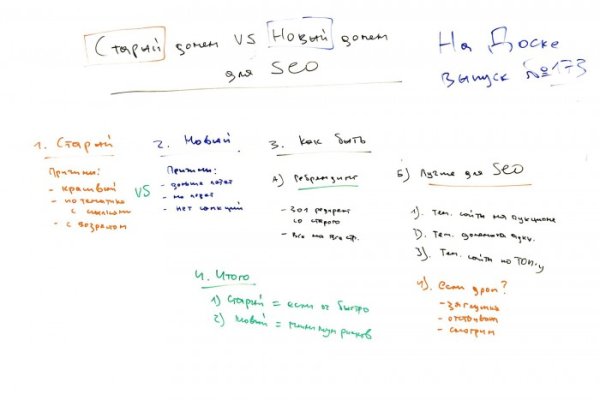 Старый домен VS Новый домен
для SEO
На Доске
выпуск №173
1. Старый
Причины:
- красивый
- по тематике
с ссылками
- с возрастом
VS
2. Новый
Причины:
- дольше
- не
- нет санкций
3. Как быть
А) Ребрендинг
- 301 редирект
со старого
- Все на все стр.
Б) Лучше для SEO
1). Тем. сайты на аукционе
2). Тем. домены аукц.
3). Тем. сайты по ТОП-у
4). Если дроп?
- заглушка
- отстаиваем
- смотрим
4. Итого
1) Старый = если оч быстро
2) Новый = минимум рисков